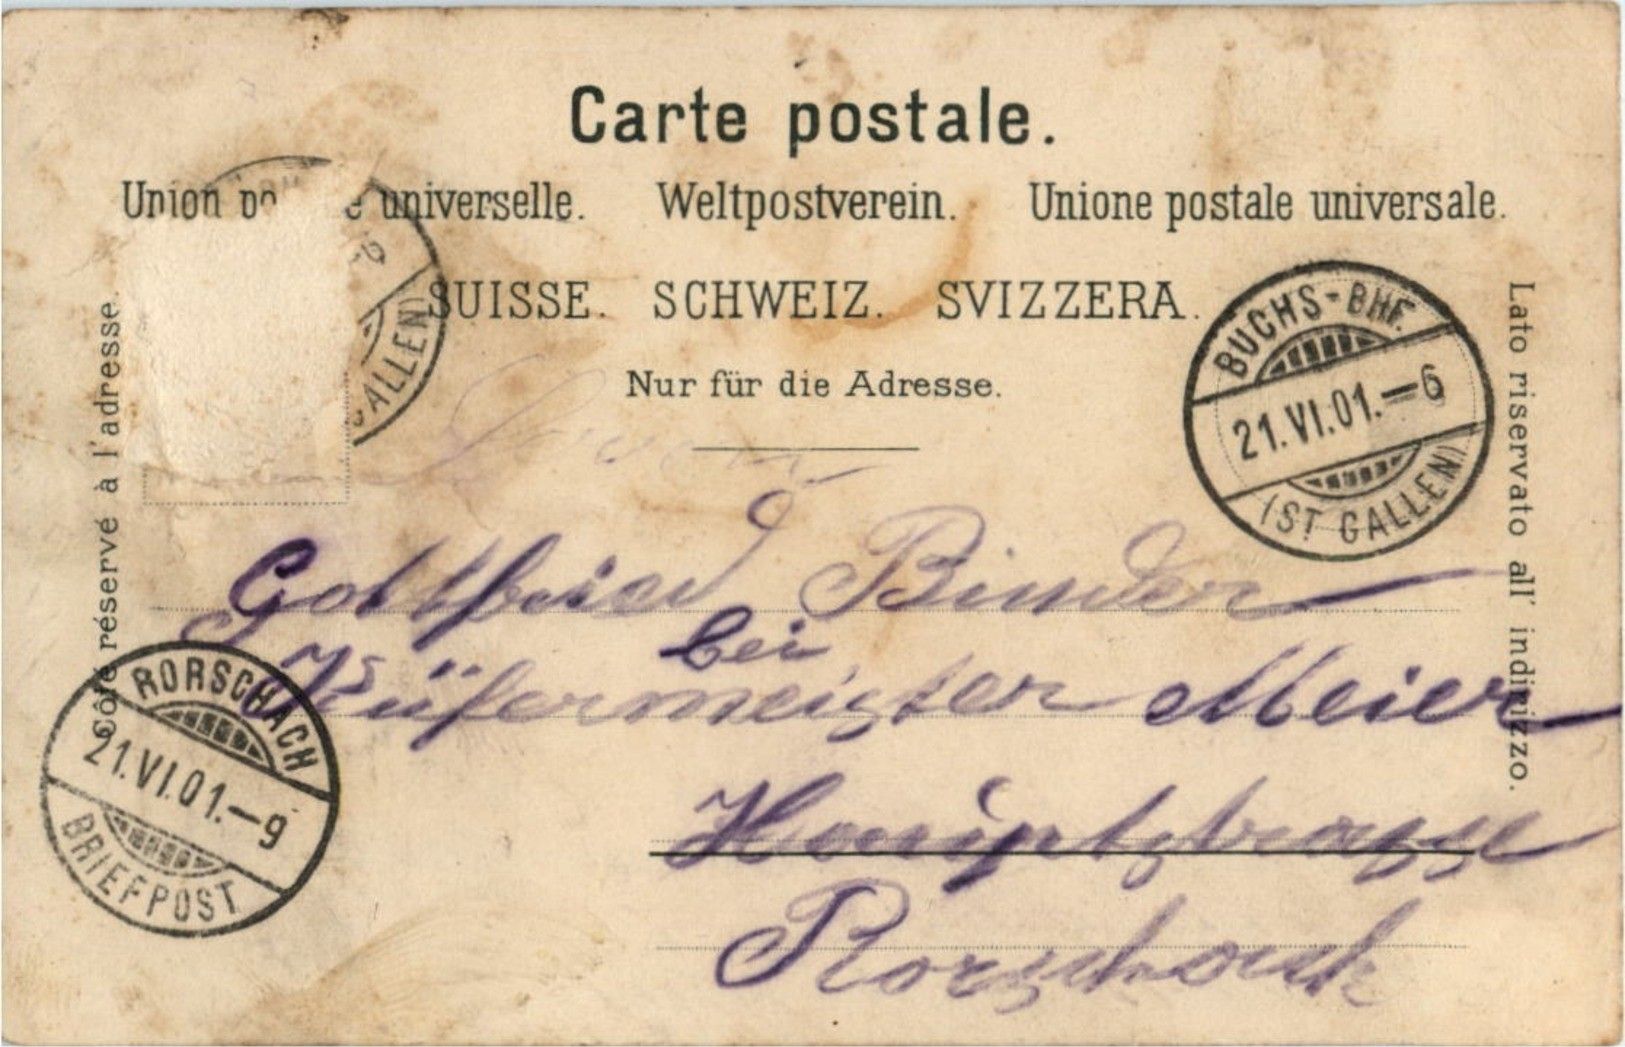 Carte postale.
Union po e universelle. Weltpostverein. Unione postale universale.
SUISSE. SCHWEIZ. SVIZZERA.
Nur für die Adresse.
Côté réservé à l'adresse.
Lato riservato all' indirizzo.
GALLEN)
BUCHS-BHF.
21.VI.01.–6
(ST GALLEN)
Gottfried Binder
bei
Küfermeister Meier
Hauptstrasse
Rorschach
RORSCHACH
21.VI.01.–9
BRIEFPOST